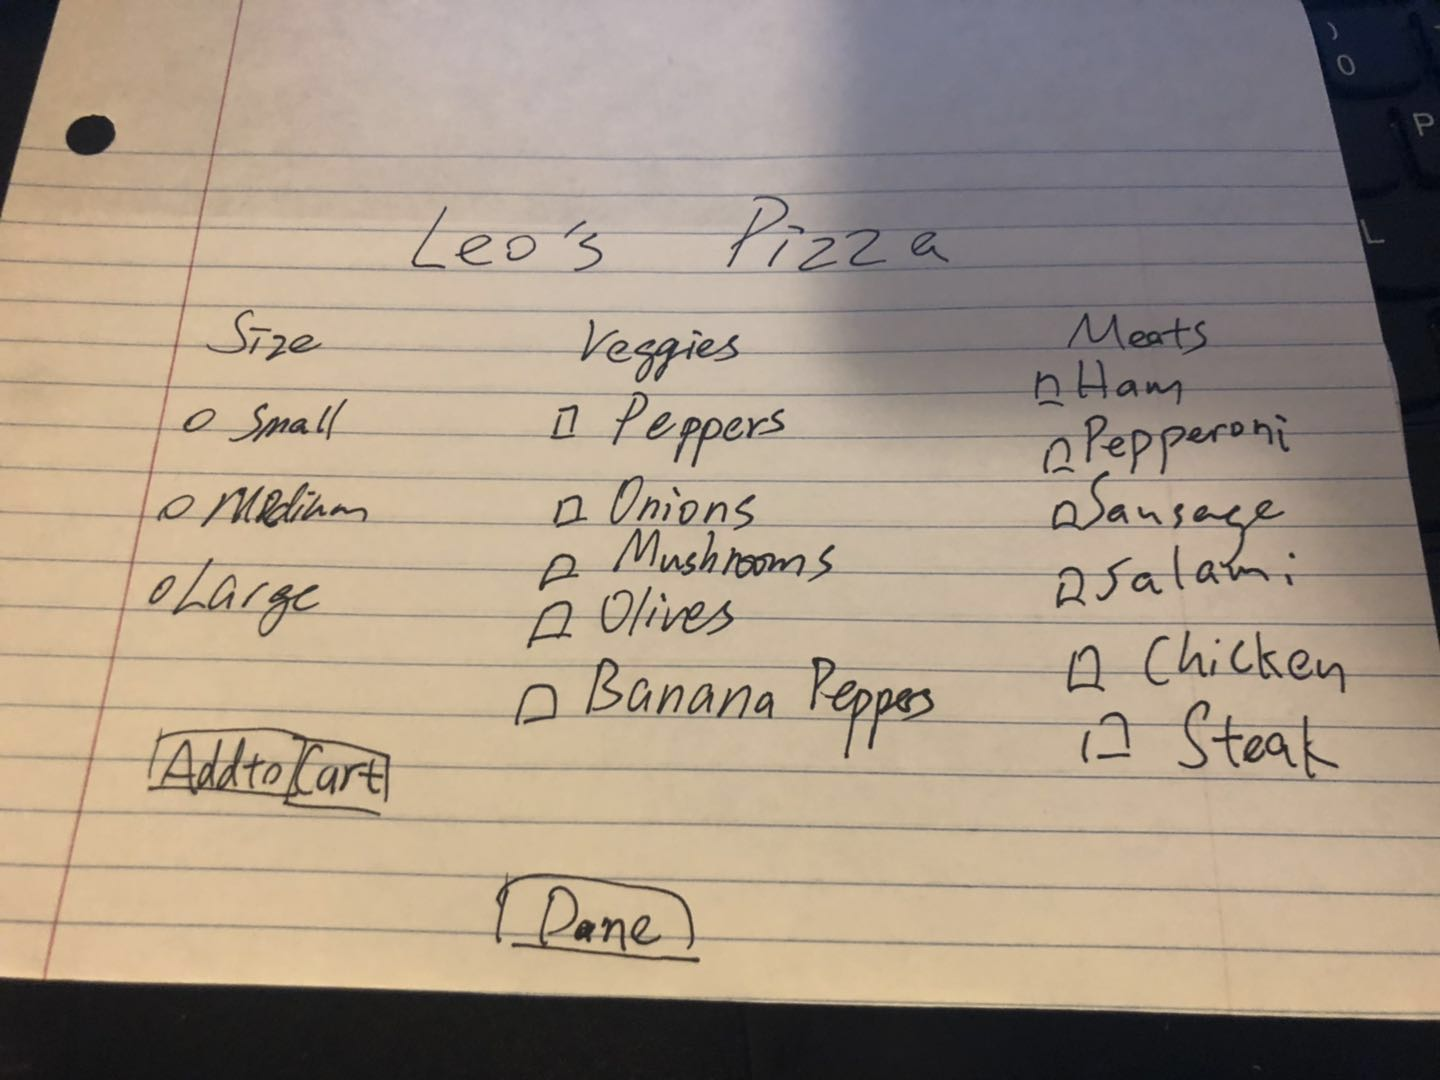 Leo's Pizza
Size
Small
Medium
Large
Add to Cart
Veggies
Peppers
Onions
Mushrooms
Olives
Banana Peppers
Meats
Ham
Pepperoni
Sausage
Salami
Chicken
Steak
Done
)
0
P
L